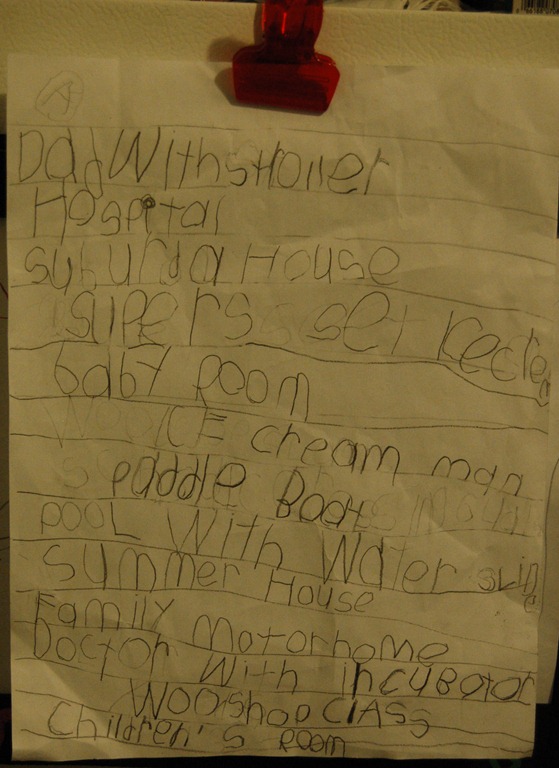 A
Dad With stroller
Hospital
suburda House
supers set
baby Room
ICE cream man
paddle Boat
pooL With Water slide
summer House
Family Motorhome
Doctor With incubator
WooshopClASS
Children's Room